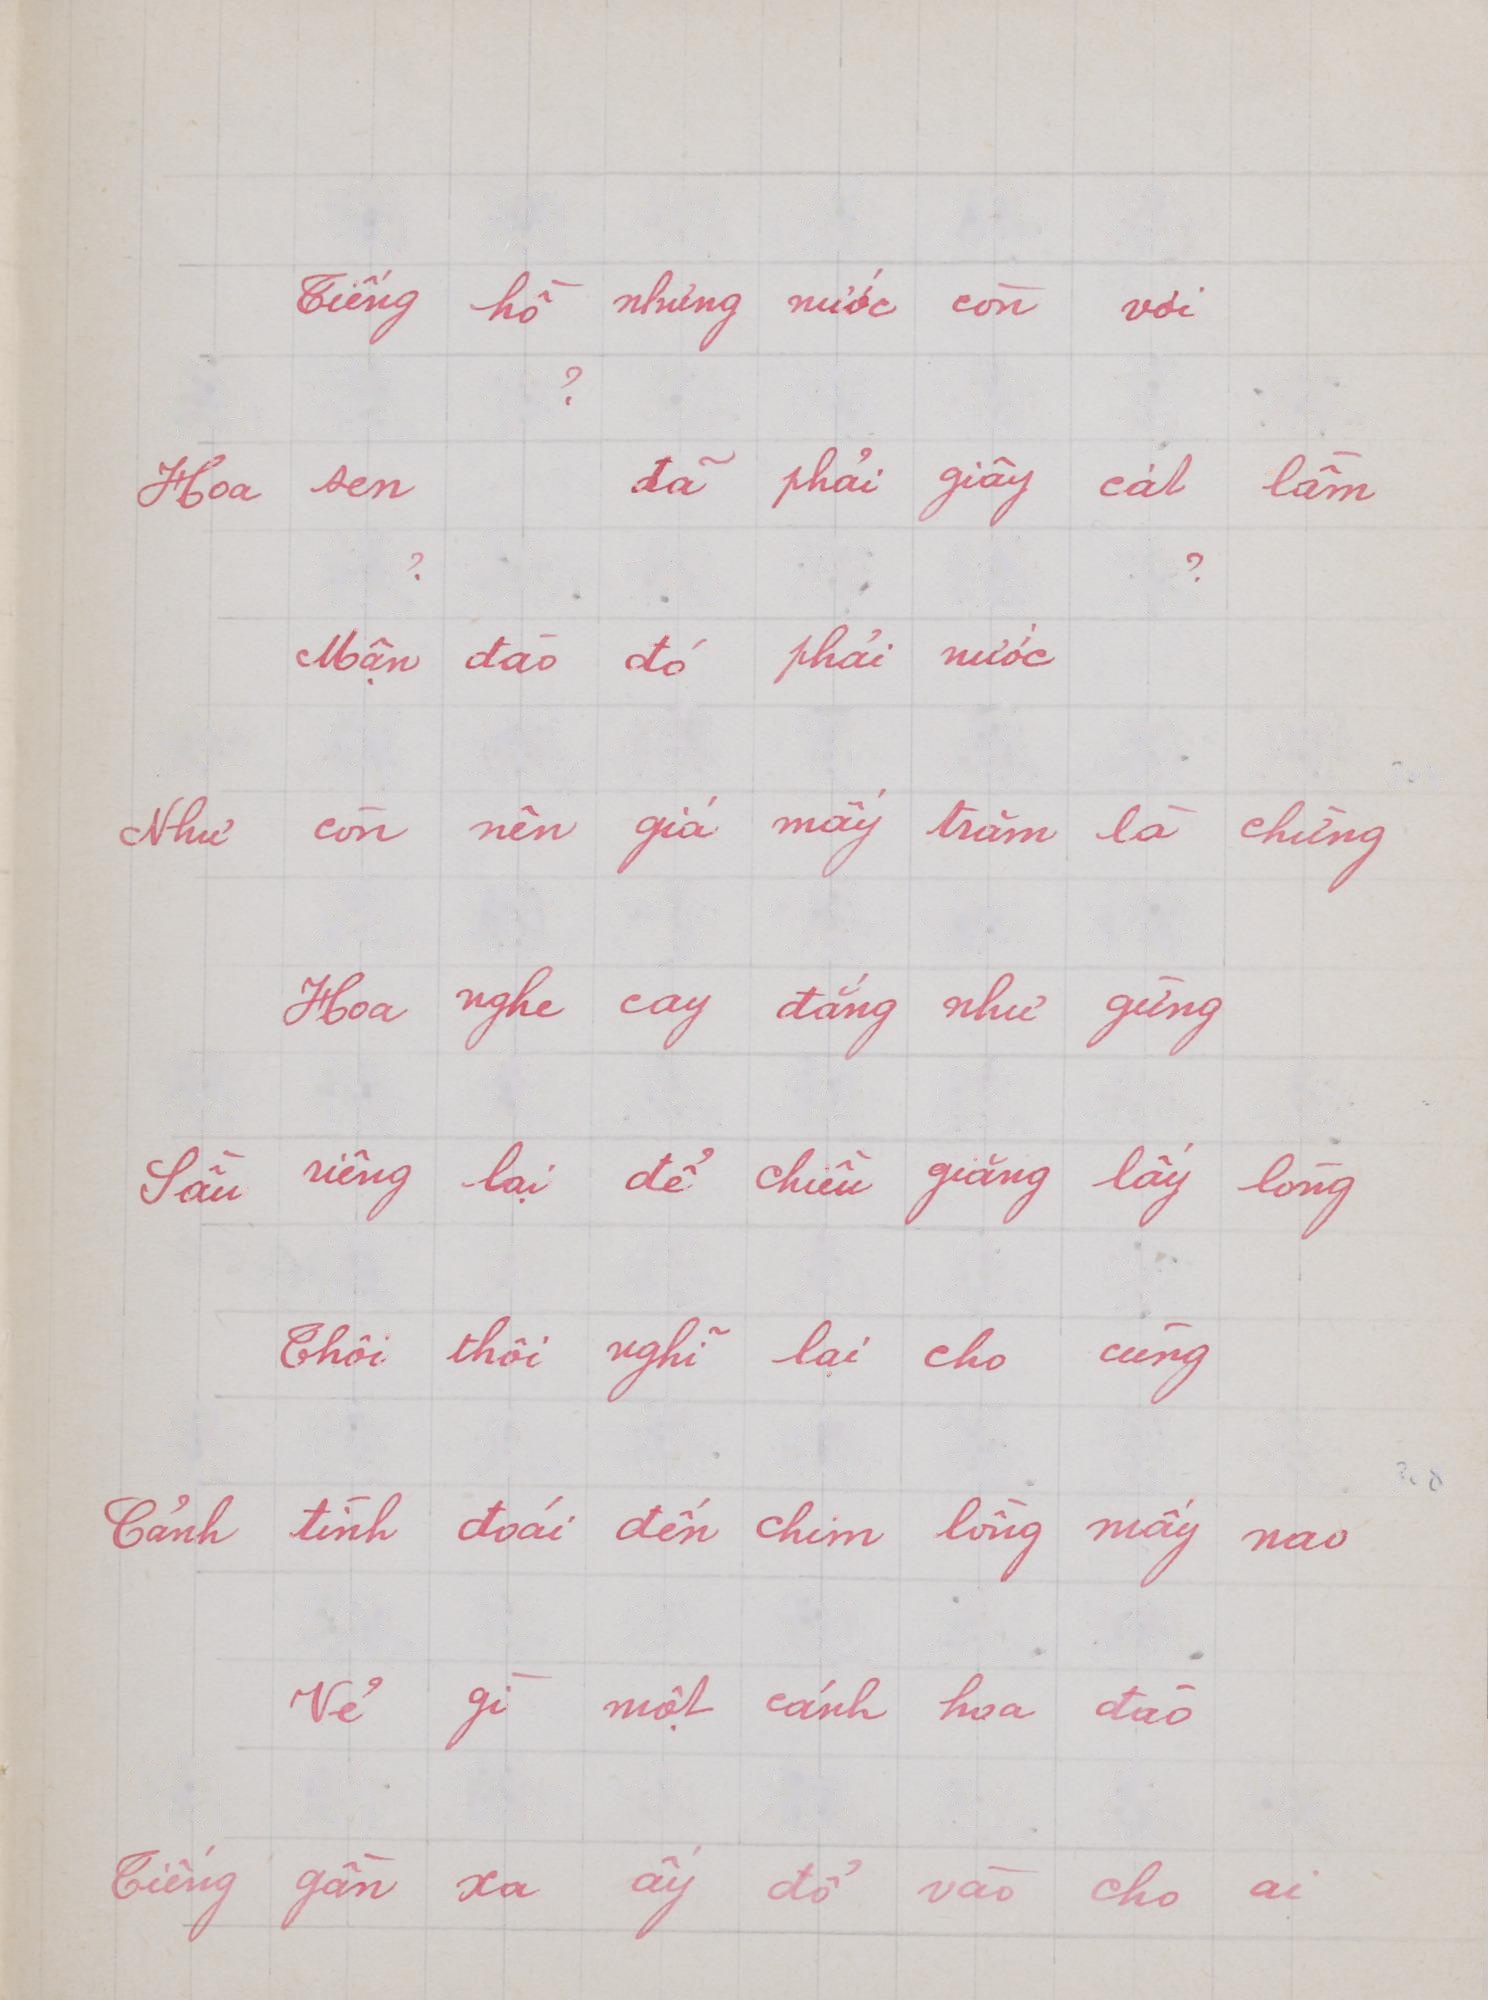 Tiếng hồ nhưng nước còn vơi
?
Hoa sen đã phải giây cát lầm
? ?
Mận đào đó phải nước
Như còn nên giá mấy trăm là chừng
Hoa nghe cay đắng như gừng
Sầu riêng lại để chiều giăng lấy lòng
Thôi thôi nghĩ lại cho cùng
Cảnh tình đoái đến chim lồng mấy nao
Vẻ gì một cánh hoa đào
Tiếng gần xa ấy đổ vào cho ai